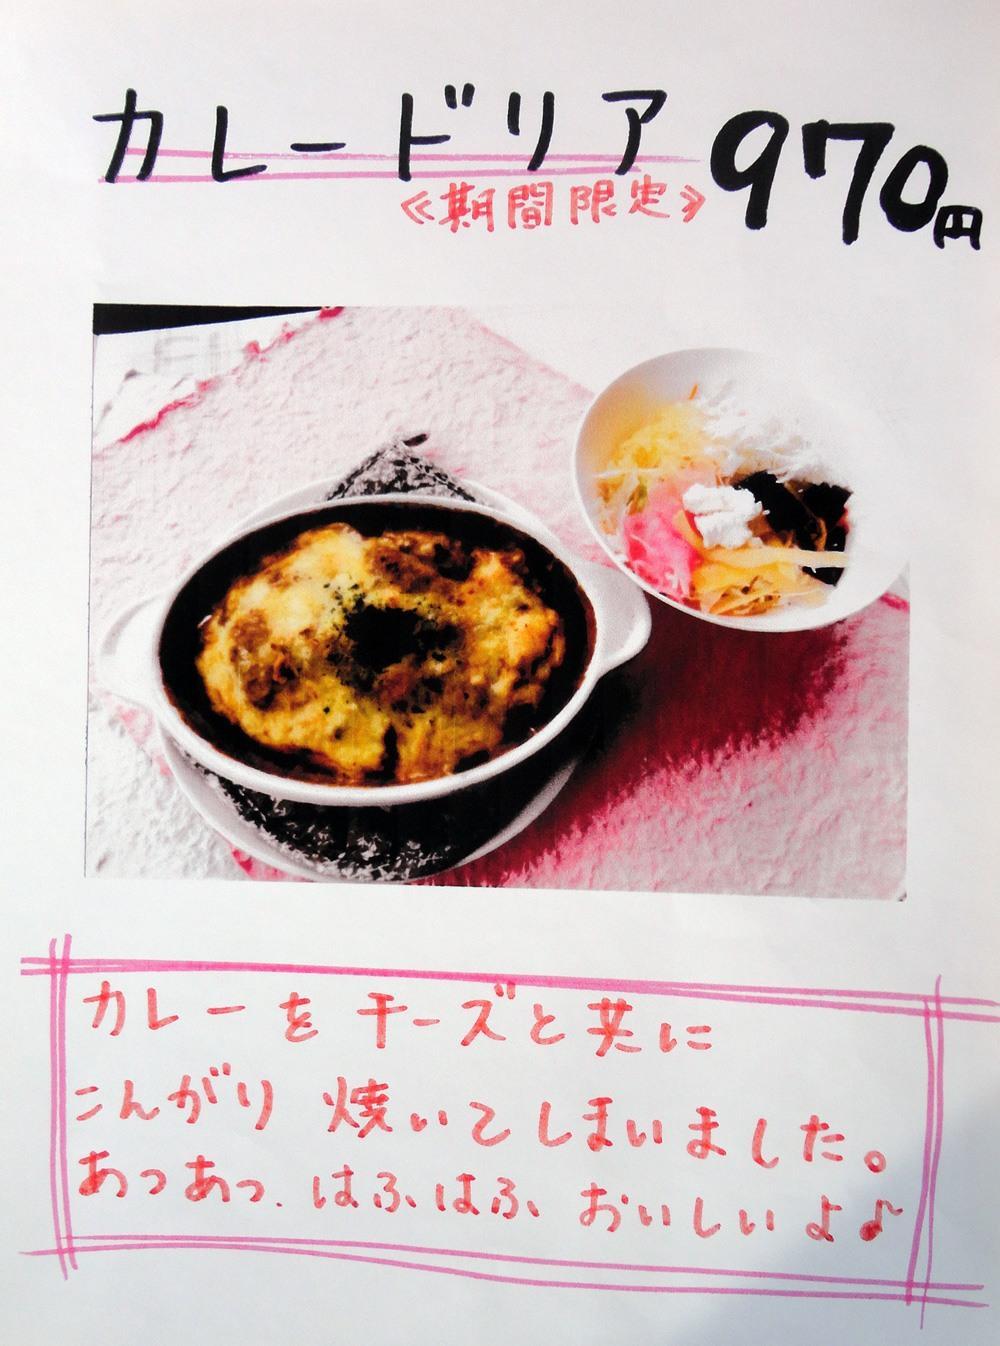 カレードリア 970円
《期間限定》
カレーを チーズと共に
こんがり 焼いてしまいました。
あつあつ、はふはふ おいしいよ♪